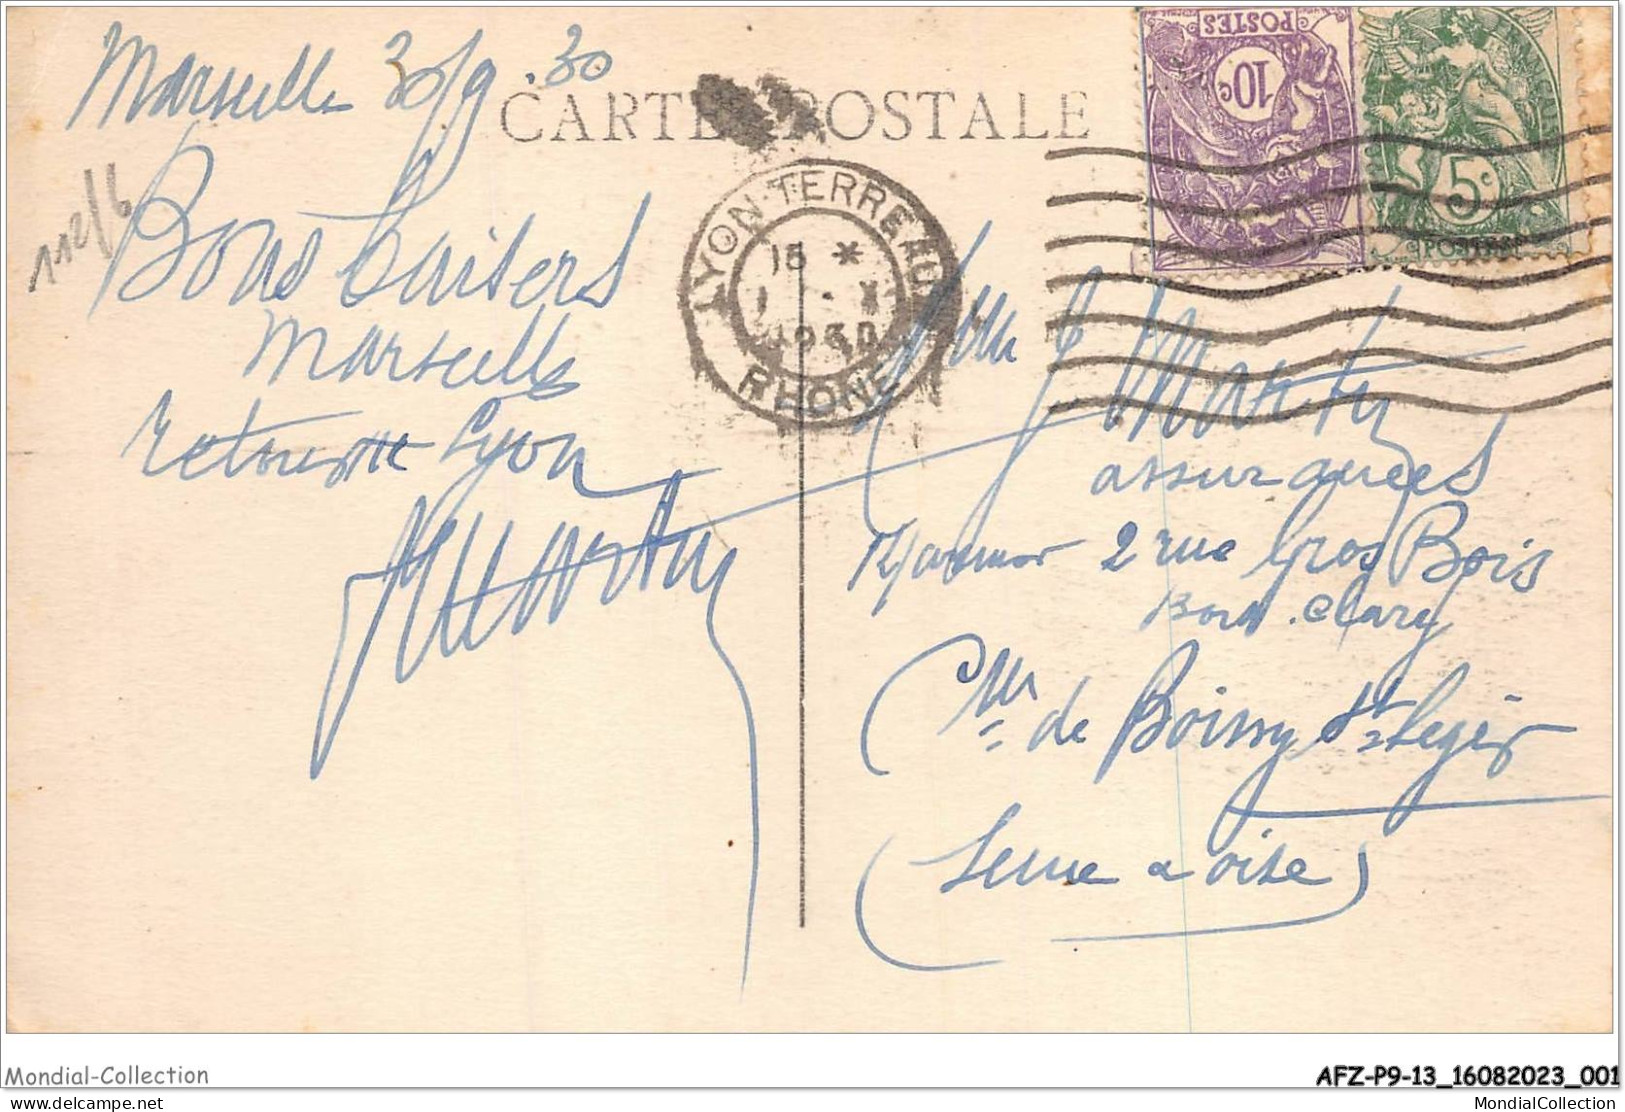 Marseille 30/9.30
CARTE POSTALE
112/6
POSTES
10c
5c
POSTES
LYON-TERREAUX
15 *
1 - X
1930
RHONE
Bons baisers
Marseille
retourne Lyon
J Marty
Mr J Marty
assurances
2 rue Gros Bois
Bord. Clary
de Boissy St Leger
(Seine & oise)
Mondial-Collection
AFZ-P9-13_16082023_001
www.delcampe.net
MondialCollection